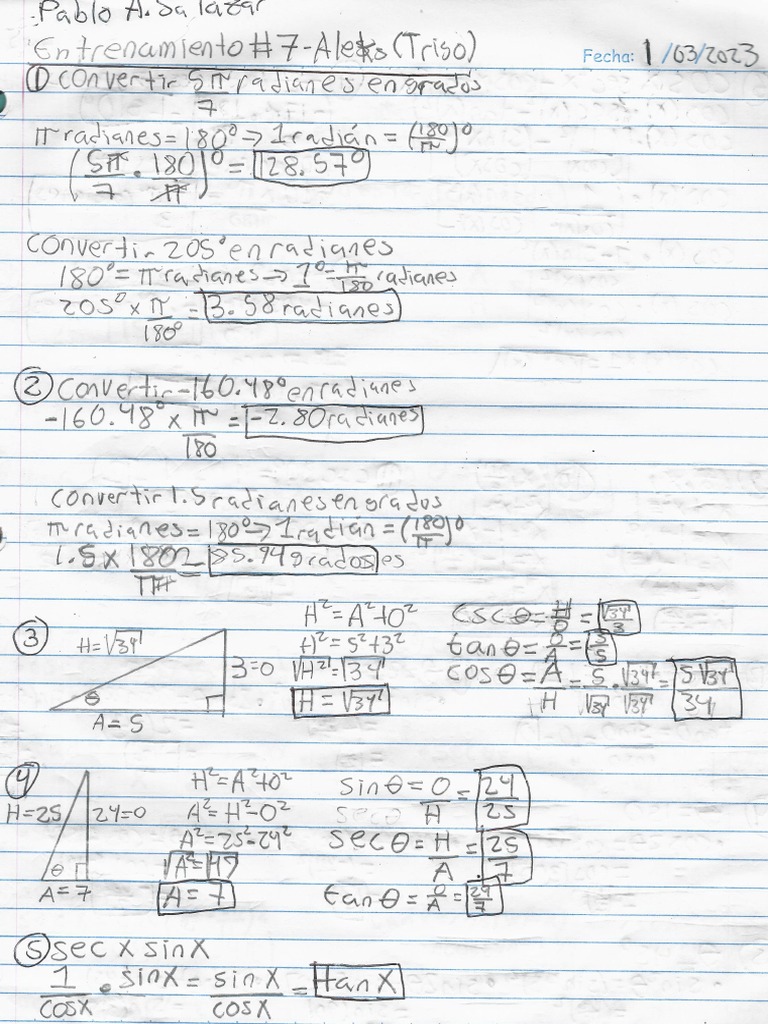 Pablo A. Salazar
Entrenamiento #7-Aleks (Triso) Fecha: 1/03/2023
① Convertir 5π/7 radianes en grados
π radianes = 180° → 1 radián = (180/π)°
(5π/7 · 180/π)° = 128.57°
Convertir 205° en radianes
180° = π radianes → 1° = π/180 radianes
205° × π/180° = 3.58 radianes
② Convertir -160.48° en radianes
-160.48° × π/180 = -2.80 radianes
Convertir 1.5 radianes en grados
π radianes = 180° → 1 radián = (180/π)°
1.5 × 180/π = 85.94 grados es
③ H=√34 3=O θ A=5
H² = A²+O²
H² = 5²+3²
√H² = √34
H = √34
csc θ = H/O = √34/3
tan θ = O/A = 3/5
cos θ = A/H = 5/√34 · √34/√34 = 5√34/34
④ H=25 24=O θ A=7
H² = A²+O²
A² = H²-O²
A² = 25²-24²
√A² = √49
A = 7
sin θ = O/H = 24/25
sec θ = H/A = 25/7
tan θ = O/A = 24/7
⑤ sec x sin x
1/cos x · sin x = sin x/cos x = tan x